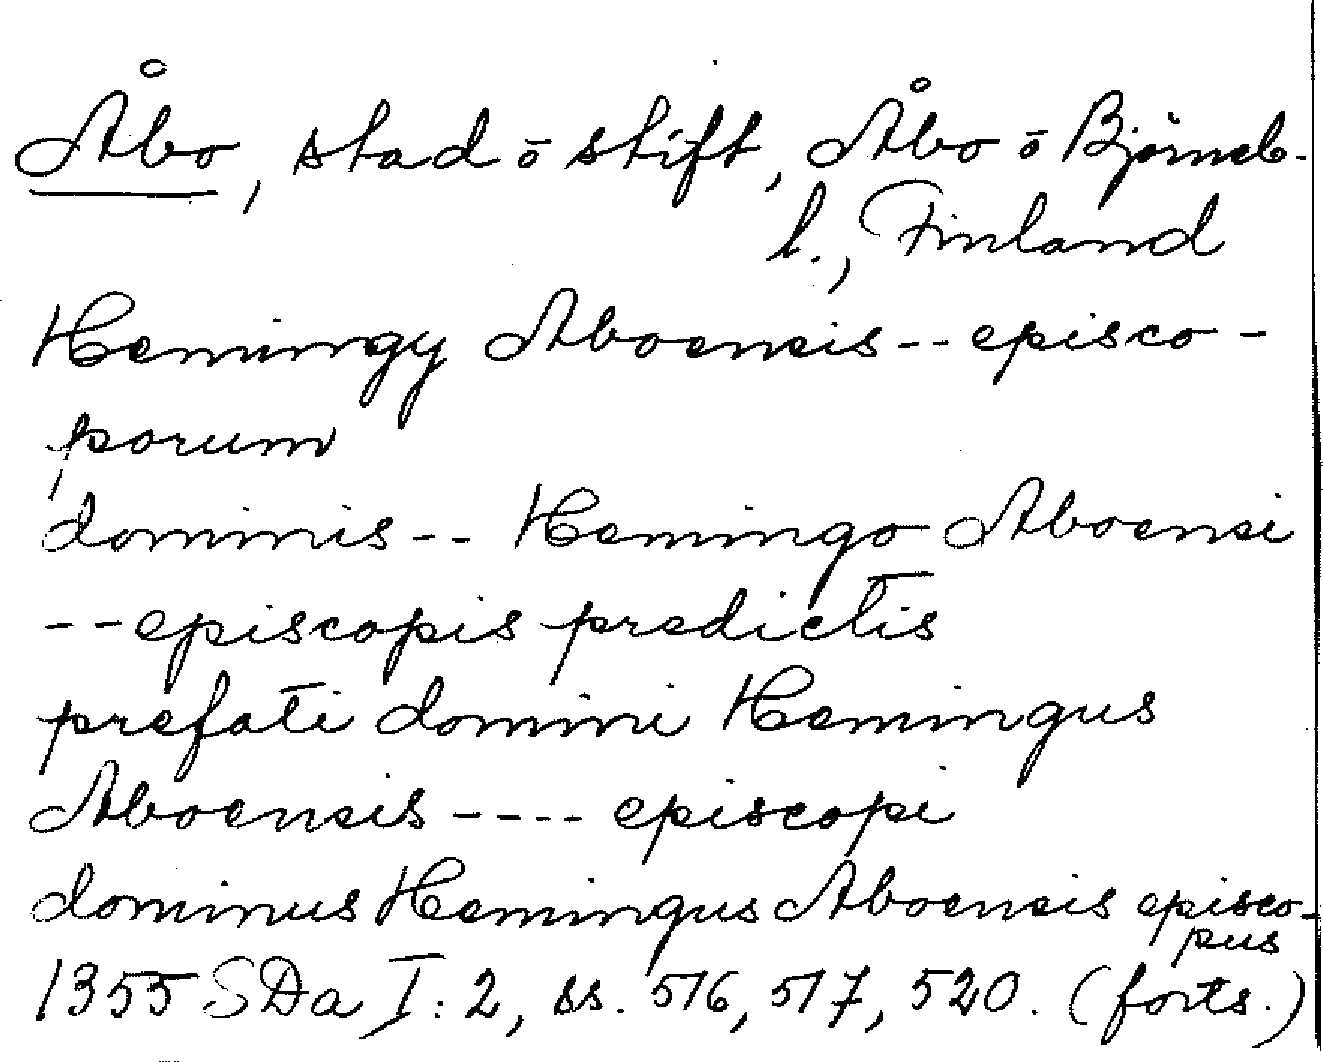 Åbo, stad ō stift, Åbo ō Björneb.
l., Finland
Hemingy Aboensis -- episco-
porum
dominis -- Hemingo Aboensi
-- episcopis predictis
prefati domini Hemingus
Aboensis ---- episcopi
dominus Hemingus Aboensis episco-
pus
1355 SDa I:2, ss. 516, 517, 520. (forts.)